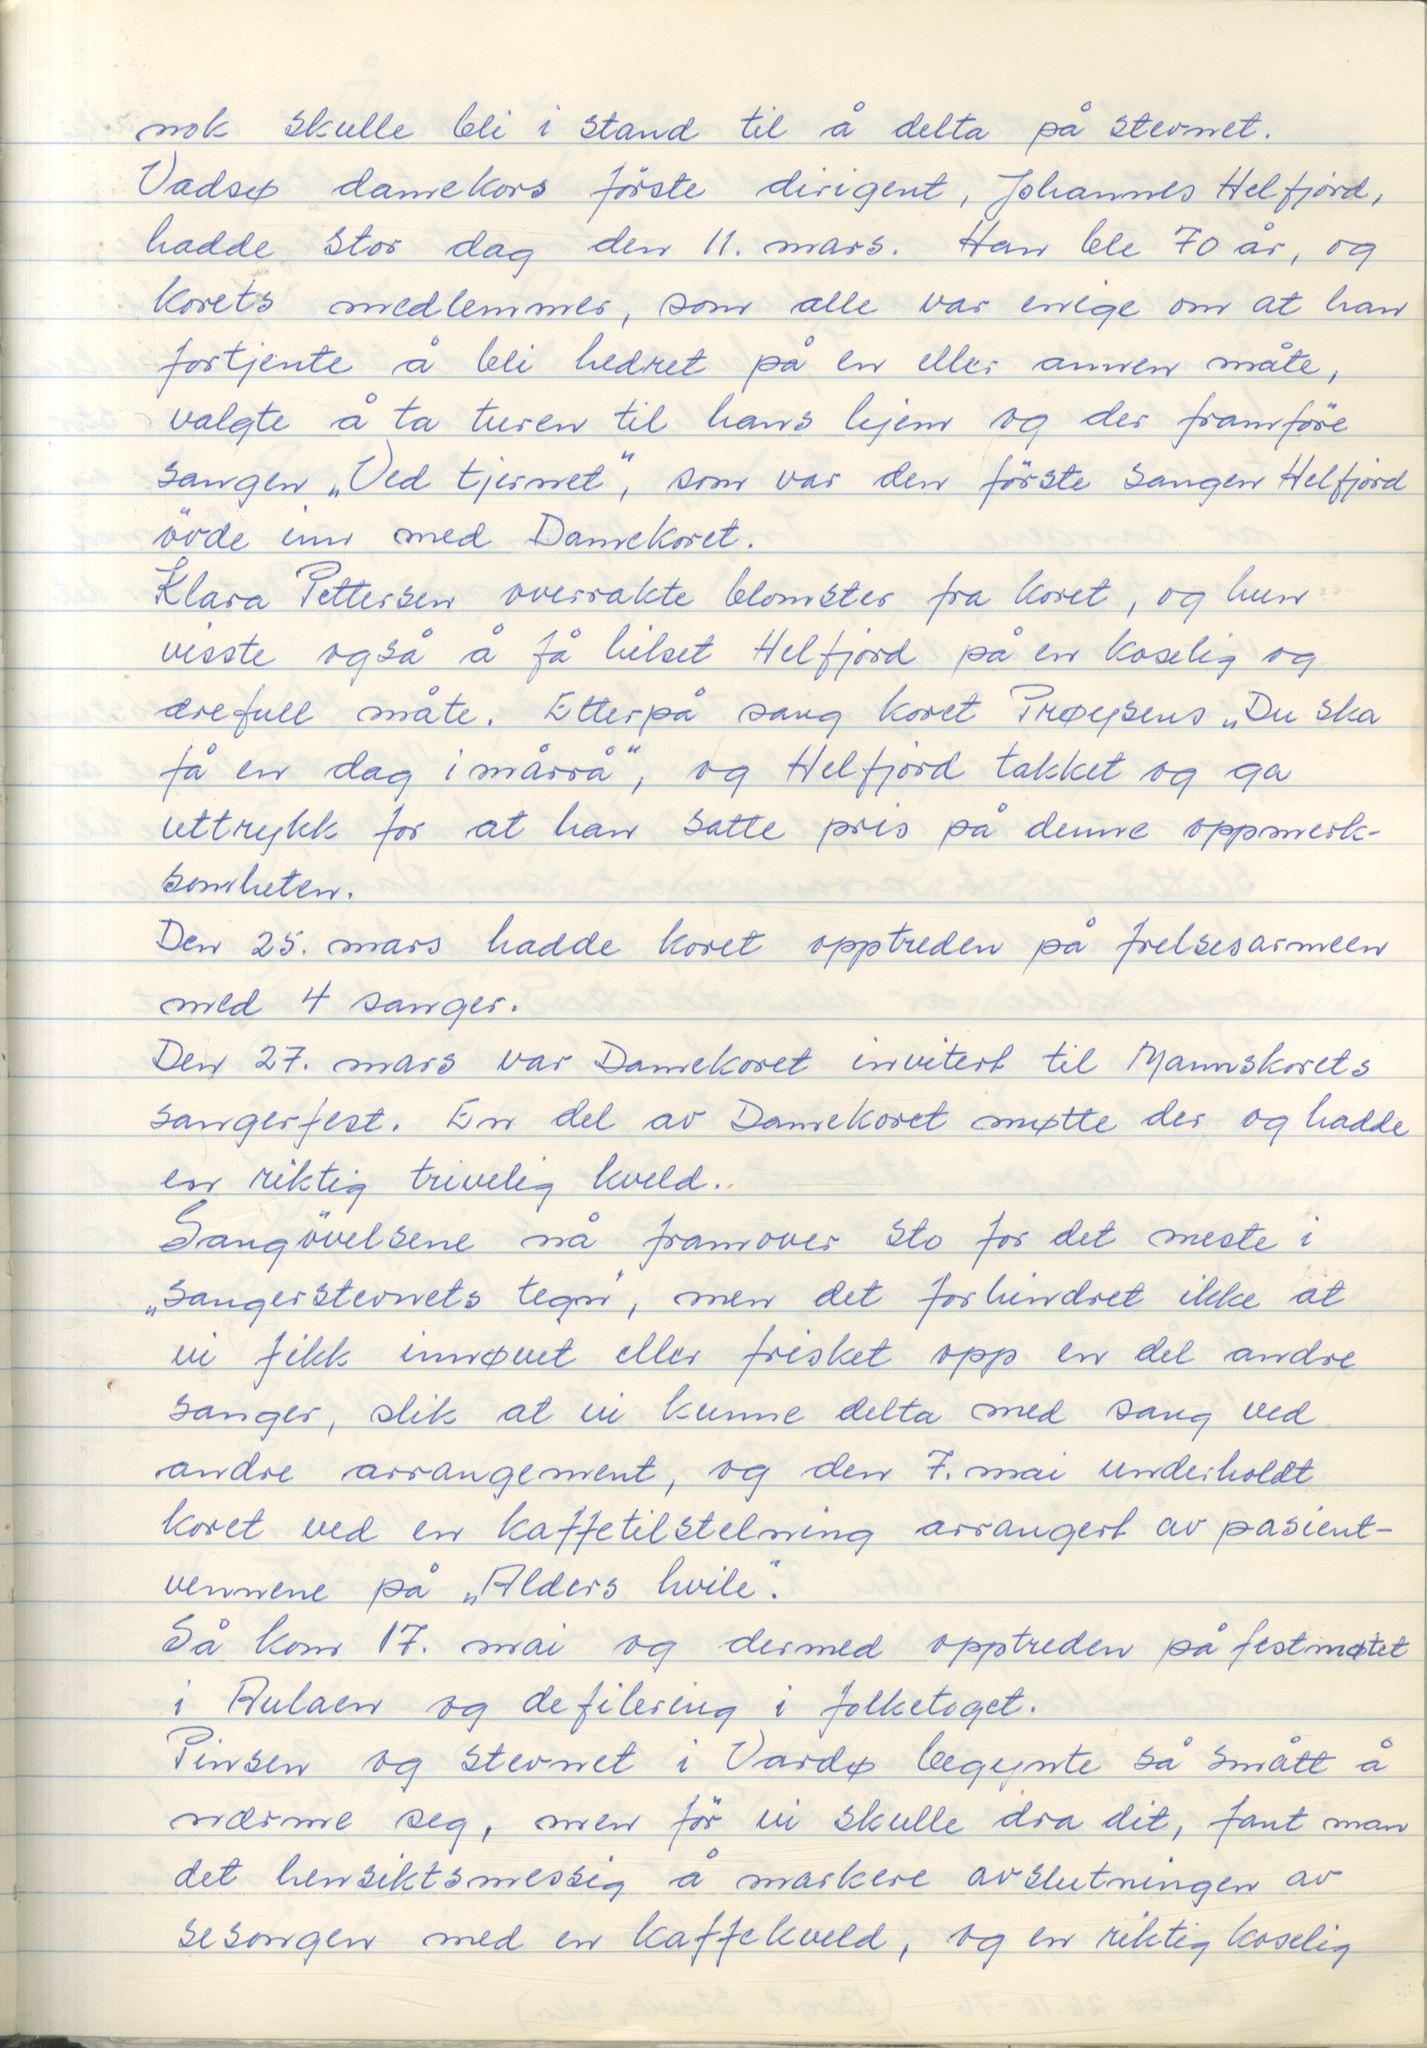 nok skulle bli i stand til å delta på stevnet.
Vadsø damekors förste dirigent, Johannes Helfjord,
hadde stor dag den 11. mars. Han ble 70 år, og
korets medlemmer, som alle var enige om at han
fortjente å bli hedret på en eller annen måte,
valgte å ta turen til hans hjem og der framföre
sangen „Ved tjernet", som var den förste sangen Helfjord
övde inn med Damekoret.
Klara Pettersen overrakte blomster fra koret, og hun
visste også å få hilset Helfjord på en koselig og
ærefull måte. Etterpå sang koret Prøysens „Du ska
få en dag i mårrå", og Helfjord takket og ga
uttrykk for at han satte pris på denne oppmerk-
somheten.
Den 25. mars hadde koret opptreden på frelsesarmeen
med 4 sanger.
Den 27. mars var Damekoret invitert til Mannskorets
sangerfest. En del av Damekoret møtte der og hadde
en riktig trivelig kveld.
Sangövelsene nå framover sto for det meste i
„sangerstevnets tegn", men det forhindret ikke at
vi fikk innøvet eller frisket opp en del andre
sanger, slik at vi kunne delta med sang ved
andre arrangement, og den 7. mai underholdt
koret ved en kaffetilstelning arrangert av pasient-
vennene på „Alders hvile".
Så kom 17. mai og dermed opptreden på festmøtet
i Aulaen og defilering i folketoget.
Pinsen og stevnet i Vardø begynte så smått å
nærme seg, men för vi skulle dra dit, fant man
det hensiktsmessig å markere avslutningen av
sesongen med en kaffekveld, og en riktig koselig